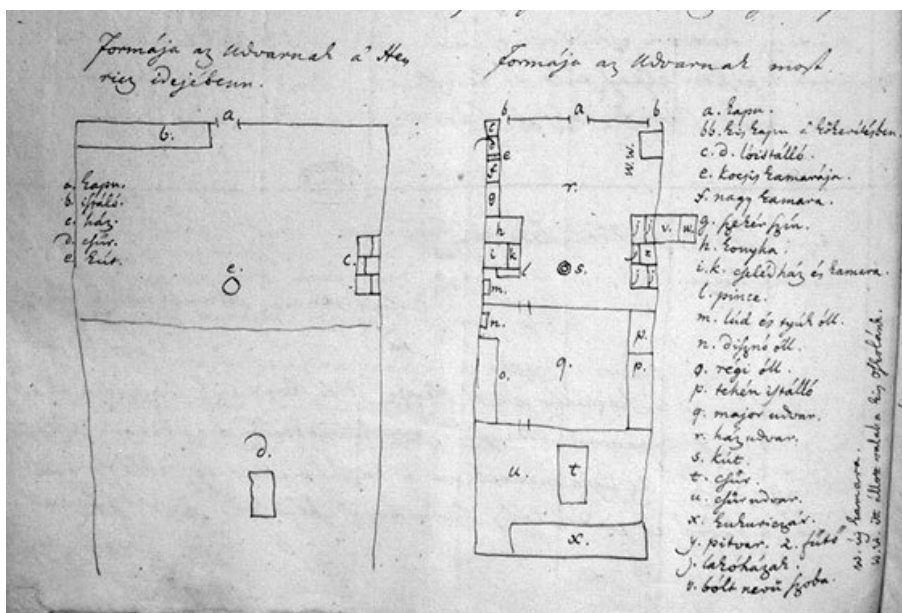 Formája az Udvarnak á He,
ricz idejébenn.
a
b.
a. kapu.
b. istáló.
c. ház.
d. chűr.
e. kút.
c.
e.
d.
Formája az Udvarnak most
b
a
b
c
d
e
f
g
h
i
k
l
m.
n.
o.
w.w.
r.
j
j
v.
w.
z
j
j
s.
p.
p.
q.
u
t
x.
a. kapu.
bb. kis kapu á kőkerítésben.
c. d. lóistálló.
e. kocsis kamarája.
f. nagy kamara.
g. szekér szín.
h. konyha.
i. k. cselédház és kamera.
l. pincze.
m. lúd és tyúk óll.
n. disznó óll.
o. régi óll.
p. tehén istálló
q. major udvar.
r. ház udvar.
s. kút.
t. chűr.
u. chűr udvar.
x. kukuriczár.
y. pitvar. 2. fűtő
j. lakóházak.
v. bólt nevű szoba.
w. új kamara.
w.w. itt állott valaha kis oskolánk.